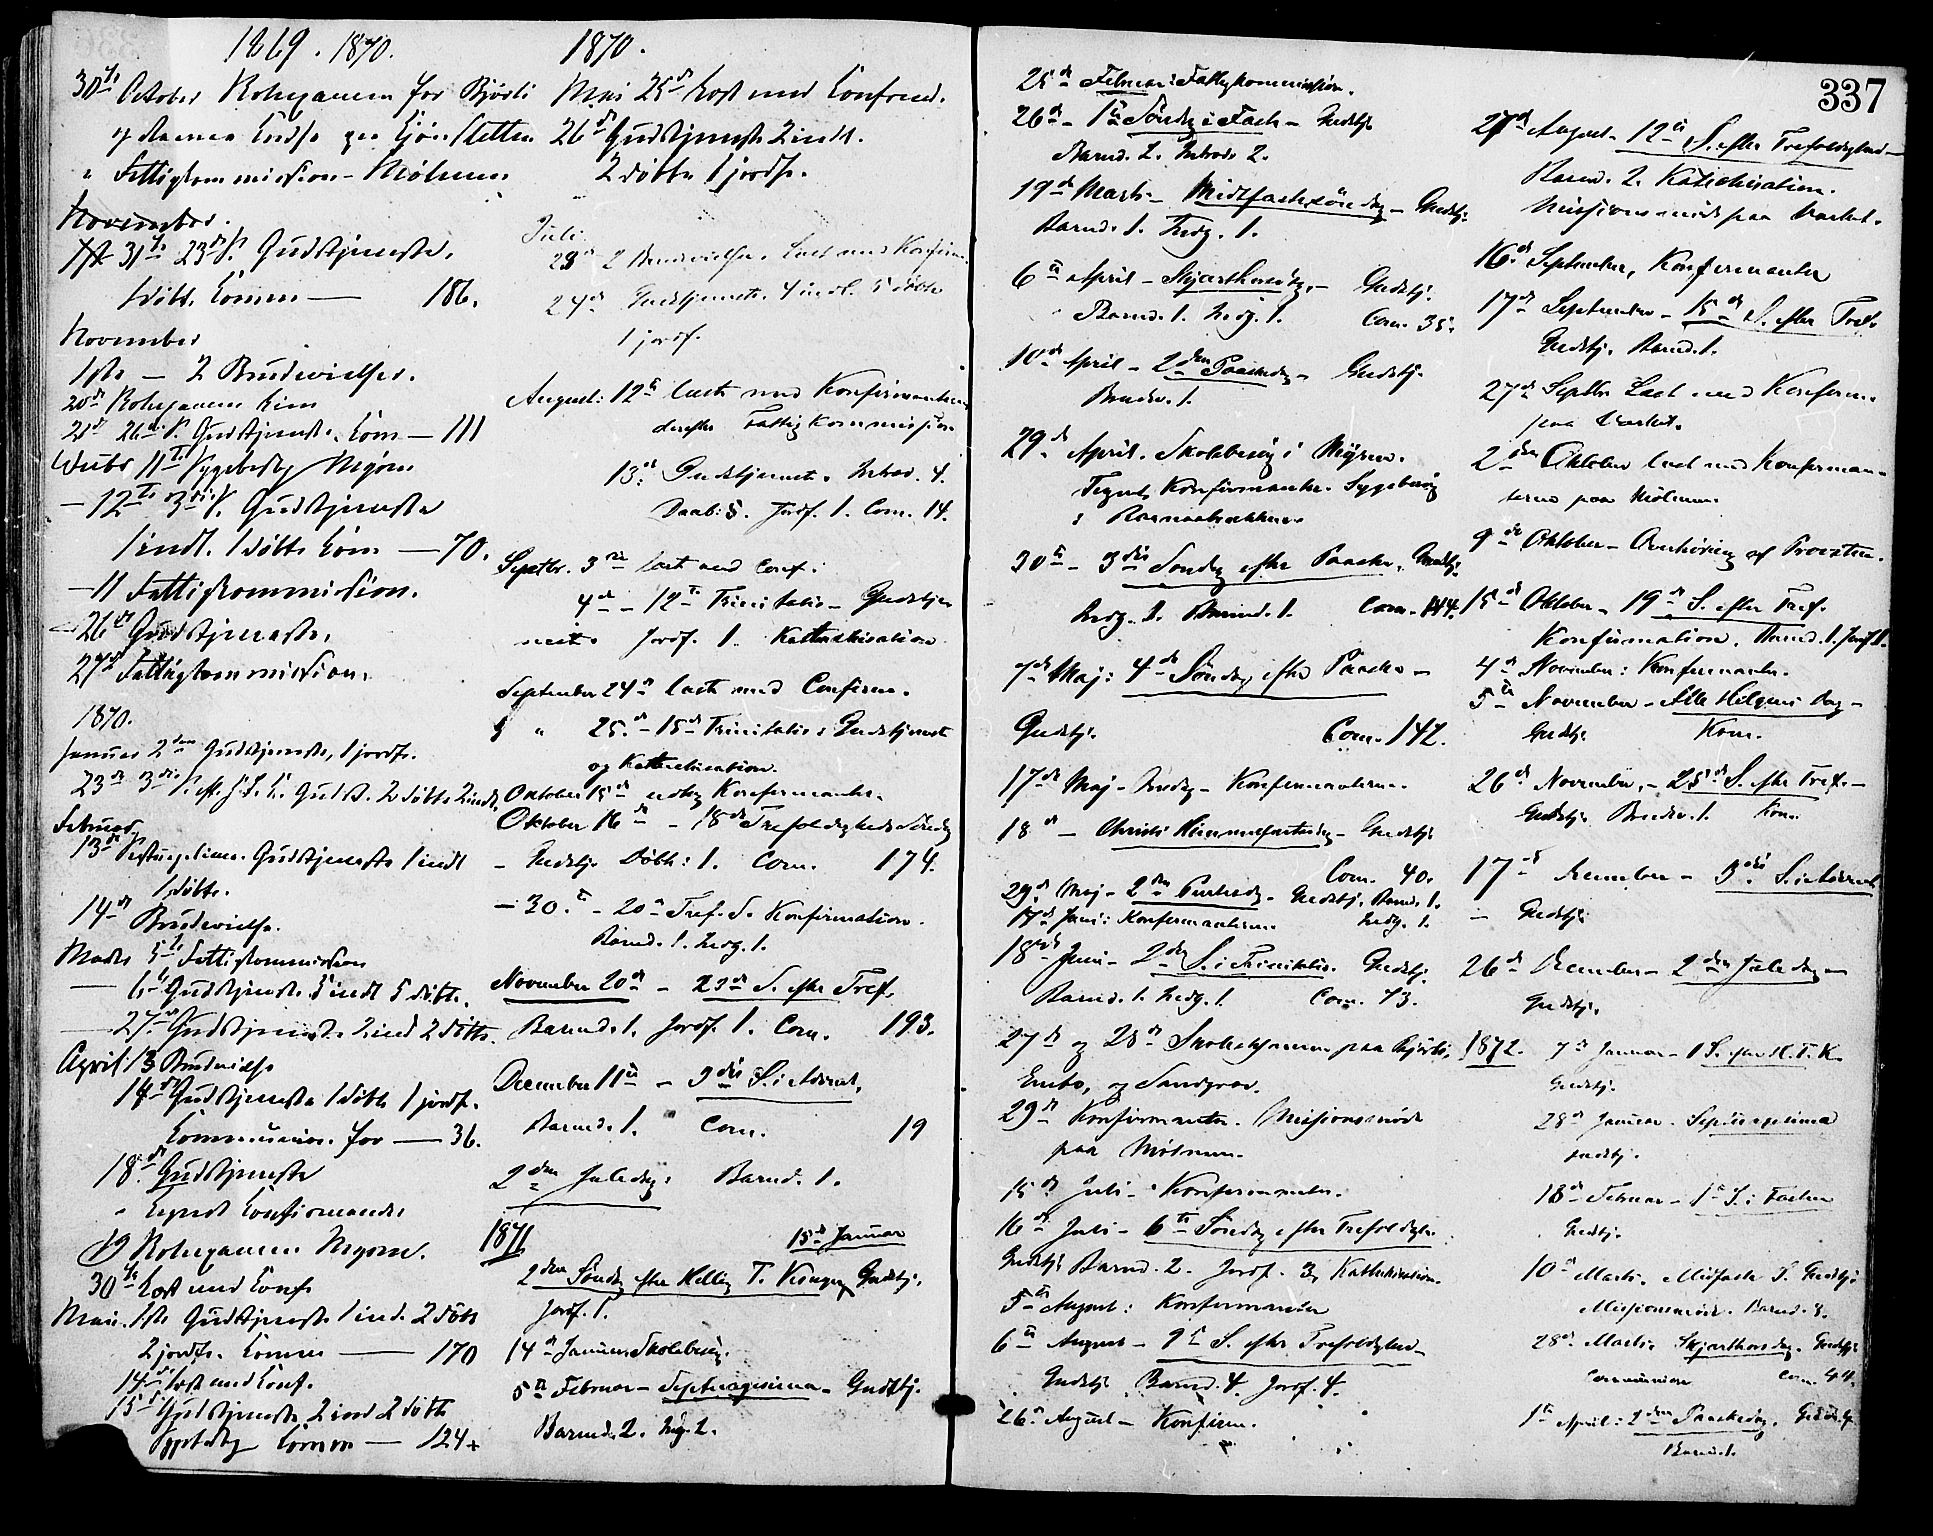 1869. 1870.
30te October Rohexamen for Bjorli
" Fattigkommission - Mølmen
November.
31te 23de S. Gudstjeneste.
1 døbt. Comm — 186.
November
1ste — 2 Brudevielser.
20de Rohexamen
21de 26de S. Gudstjeneste. Com — 111
11te Sygebesøg
— 12te 3die S. Gudstjeneste
1 indt. 1 døbt Com — 70.
— 11 Fattigkommission.
— 26de Gudstjeneste.
27de Fattigkommission.
1870.
Januar 2den Gudstjeneste, 1 jordf.
23de 3die S. eft. H. 3. K. Gudst. 2 døbte 2 indt.
Februar
13de Septuagesima. Gudstjeneste 1 indt
1 døbt.
14de Brudevielse.
Marts 5te Fattigkommission
— 6te Gudstjeneste 5 indt 5 døbte.
— 27de Gudstjeneste 2 ind 2 døbte.
April 13 Brudevielse
14de Gudstjeneste 1 døbt 1 jordf.
Communion for — 36.
18de Gudstjeneste
" Tegnet Confirmander
19 Rohexamen
30te Læst med Conf.
Mai. 1ste Gudstjeneste 1 ind. 2 døbt
2 jordf. Comm — 170
14de læst med Conf.
15de Gudstjeneste 2 ind 2 døbte
Comm — 124
1870.
Mai 25de Læst med Confirmd.
26de Gudstjeneste 2 indt.
2 døbte 1 jordf.
Juli
23de 2 Brudevielser. Læst med Konfirm.
24de Gudstjeneste. 4 indl. 5 døbte
1 jordf.
August: 12te læst med Konfirmanterne
derefter Fattigkommission
13de Gudstjeneste. Introd. 4.
Daab: 5. Jordf. 1. Com. 14.
Septbr. 3die læst med Conf.
4de — 12te Trinitatis — Gudstje-
neste Jordf. 1. Kathekisation
September 24de læst med Confirm.
" 25de — 15de Trinitatis: Gudstjeneste
og Kathekisation.
Oktober 15de Konfirmanter.
Oktober 16de — 18de Trefoldigheds Søndag
— Gudstj. Døbt: 1. Com. 174.
— 30te — 20de Tref. S. Konfirmation.
Barnd. 1. Indg. 1.
November 20de — 23de S. efter Tref.
Barnd. 1. Jordf. 1. Com. 193.
December 11te — 3die S. i Advent.
Barnd. 1. Com. 19
2den Juledag: Barnd. 1.
1871 15de Januar
2den Søndag efter Hellig T. Konger Gudstj.
Jordf. 1.
14de Januar Skolebesøg.
5te Februar — Septuagesima — Gudstj.
Barnd. 2. Indg. 2.
25de Februar: Fattigkommission.
26de — 1ste Søndag i Faste — Gudstj.
Barnd. 2. Introd. 2.
19de Marts — Midtfastesøndag — Gudstj.
Barnd. 1. Indg. 1.
6te April — Skjærthorsdag. — Gudstj.
Barnd. 1. Indg. 1. Com. 35.
10de April — 2den Paaskedag — Gudstj.
Brudev. 1.
29de April. Skolebesøg i
Tegnet Konfirmanter. Sygebesøg
i
30te — 3die Søndag efter Paaske. Gudstj.
Indg. 1. Barnd. 1. Com. 144.
7de Maj: 4de Søndag efter Paaske —
Gudstj. Com. 142.
17de Maj — Konfirmanterne.
18de — Christi Himmelfartsdag — Gudstj.
Com. 40.
29de Maj — 2den Pintsedag — Gudstj. Barnd. 1.
17de Juni: Konfirmanterne. Indg. 1.
18de Juni — 2den S. i Trinitatis. Gudstj.
Barnd. 1. Indg. 1. Com. 73.
27de og 28de Skoleexamen paa Bjorli,
Enebo, og Sandgrov.
29de Konfirmanter. Missionsmøde
paa Mølmen.
15de Juli — Konfirmanter.
16de Juli — 6te Søndag efter Trefoldigh.
Gudstj. Barnd. 2. Jordf. 3. Kathekisation.
5te August: Konfirmanter
6te August — 9de S. efter Trefoldighed —
Gudstj. Barnd. 4. Jordf. 4.
26de August — Konfirm.
337
27de August — 12te S. efter Trefoldighed —
Barnd. 2. Katekisation.
Missionsmøde paa
16de September, Konfirmanter
17de September — 15de S. efter Tref.
Gudstj. Barnd. 1.
27de Septbr Læst med Konfirm.
paa
2den Oktober læst med Konfirman-
terne paa Mølmen.
9de Oktober — af Provsten.
15de Oktober — 19de S. efter Tref.
Konfirmation. Barnd. 1. Jordf. 1.
4de November: Konfirmanter.
5te November — Alle Helgens Dag —
Gudstj. Kom.
26de November. — 25de S. efter Tref. —
Gudstj. Brudev. 1. Kom.
17de December — 3die S. i Advent
— Gudstj.
26de December — 2den Juledag —
Gudstj.
1872. 7de Januar — 1 S. efter H. T. K.
Gudstj.
28de Januar. Septuagesima
Gudstj.
18de Februar — 1ste S. i Fasten
Gudstj.
10de Marts. Midfaste S. Gudstj.
Missionsmøde. Barnd. 3.
28de Marts. Skjærthorsdag. Gudstj.
Communion Com. 44.
1ste April: 2den Paaskedag. Gudstj.
Barnd. 1.